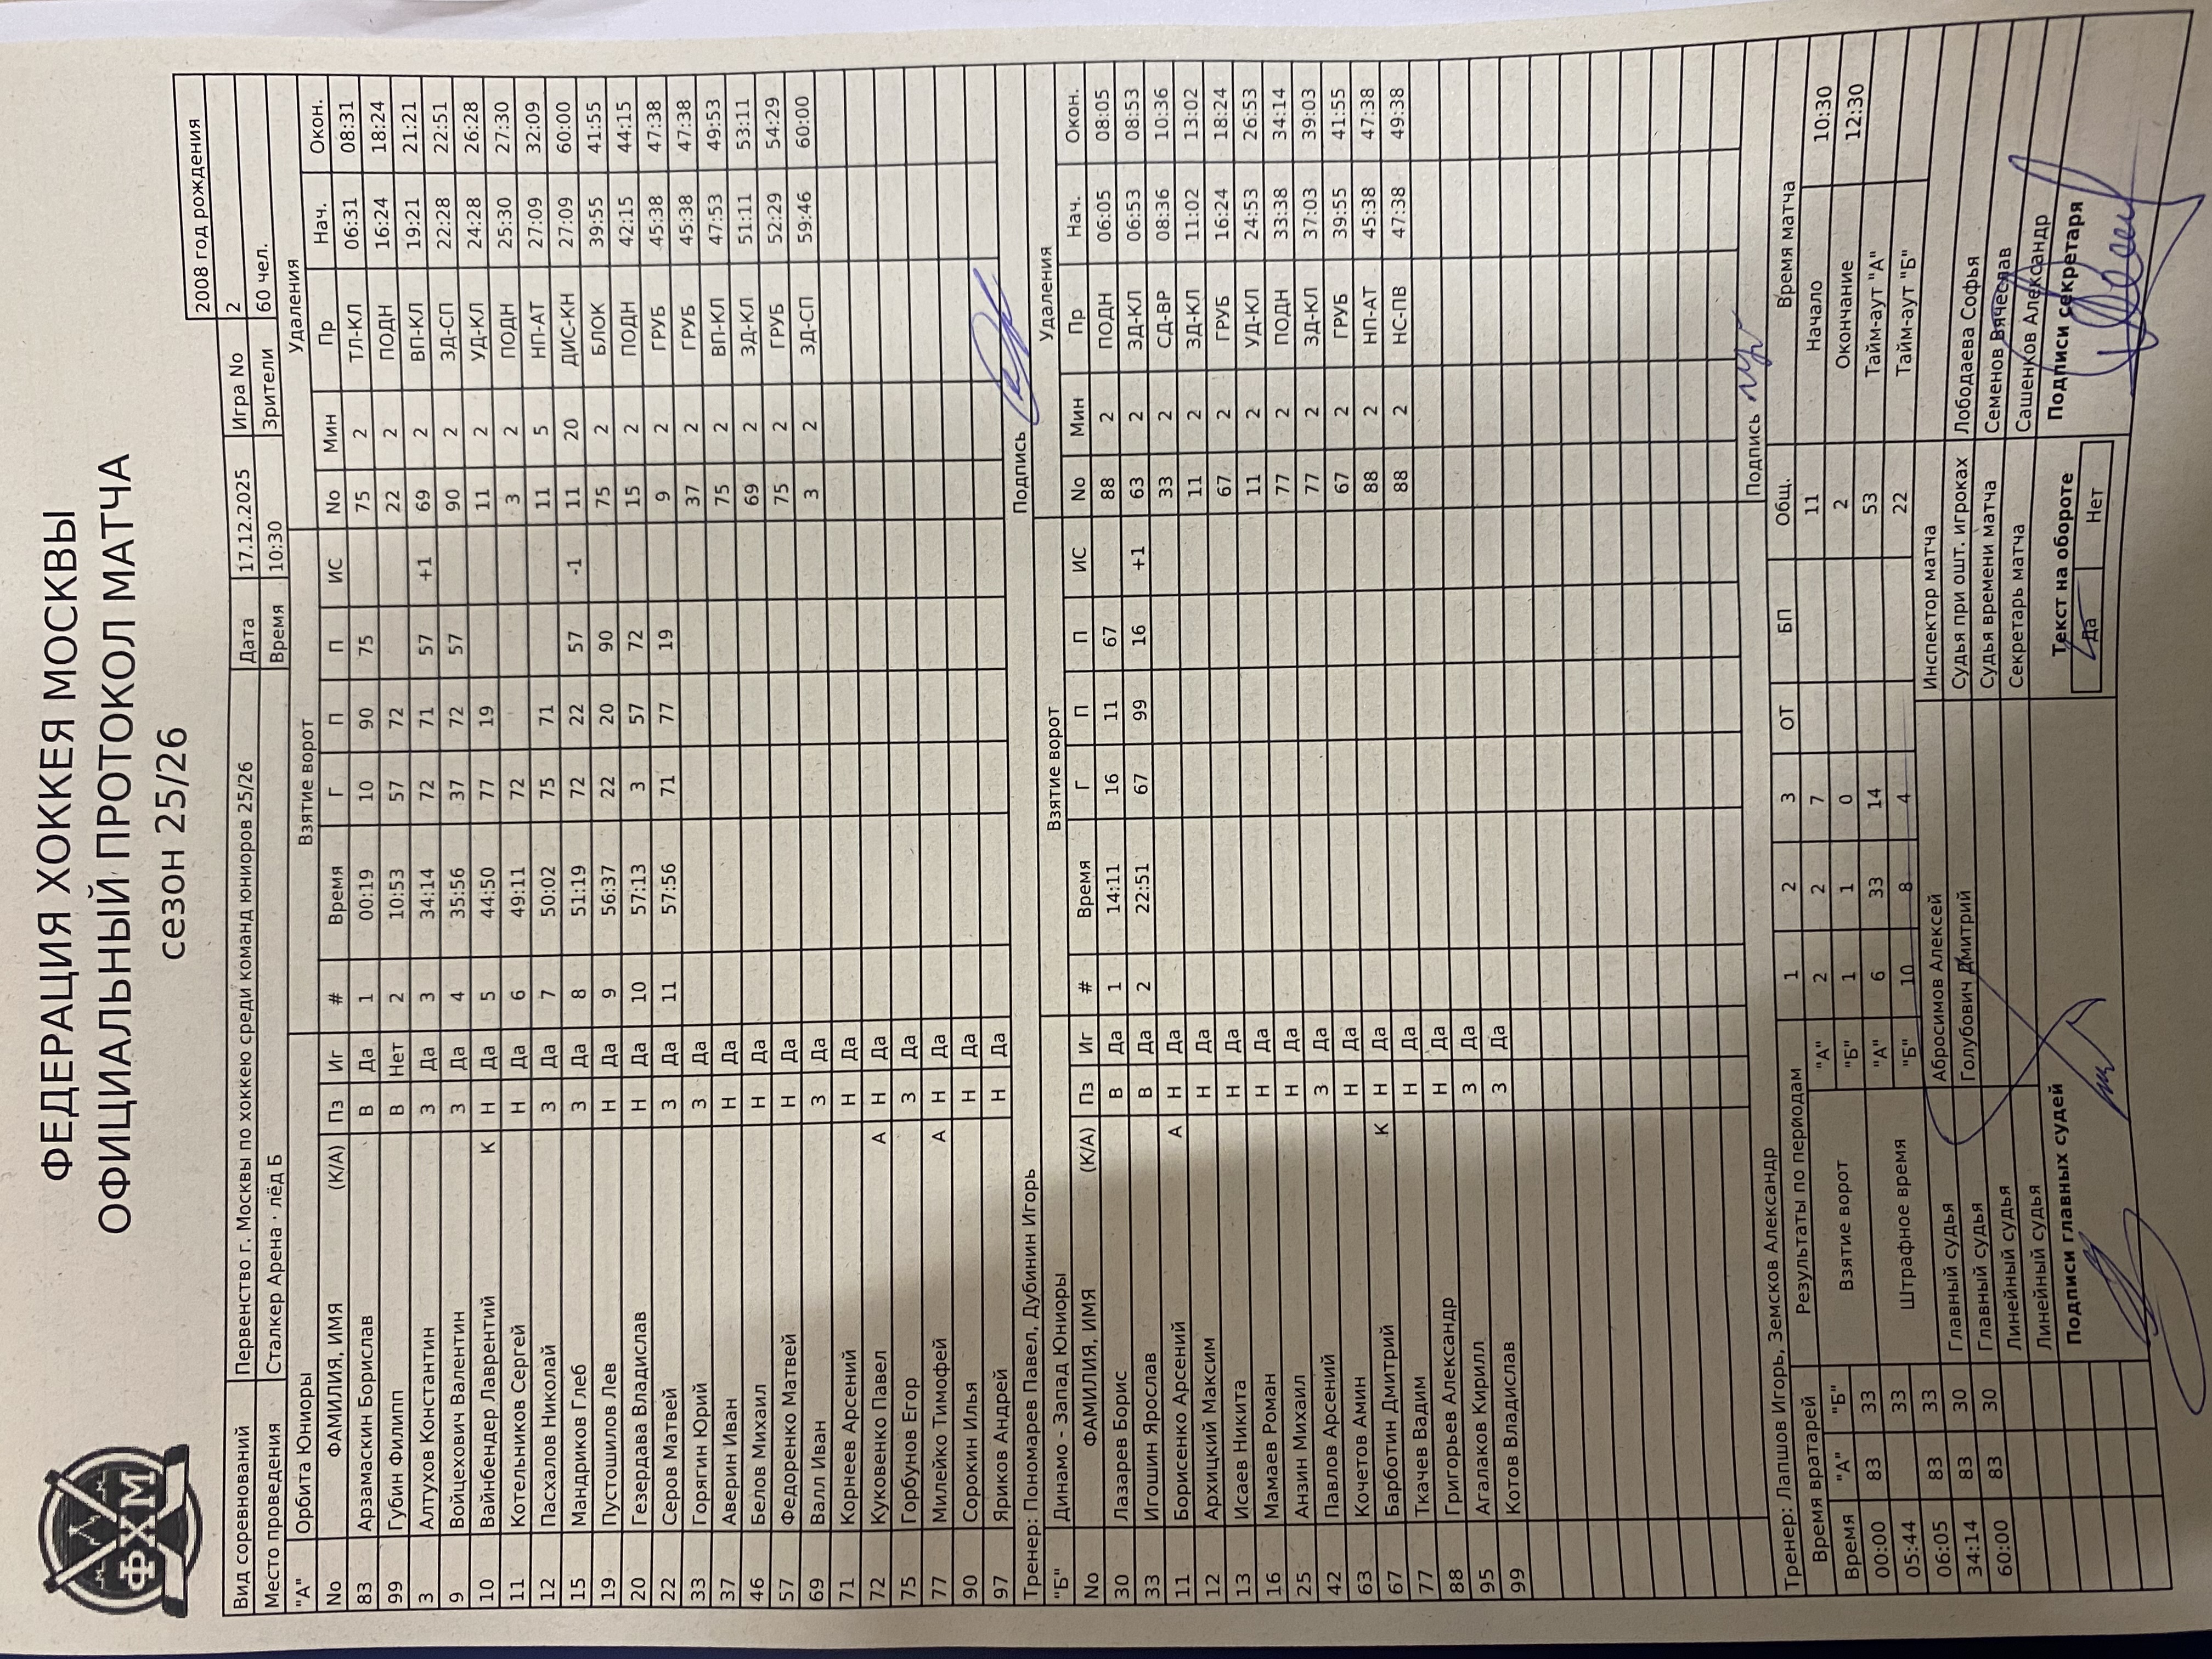 ФХМ
ФЕДЕРАЦИЯ ХОККЕЯ МОСКВЫ
ОФИЦИАЛЬНЫЙ ПРОТОКОЛ МАТЧА
сезон 25/26
2008 год рождения
Вид соревнований Первенство г. Москвы по хоккею среди команд юниоров 25/26 Дата 17.12.2025 Игра No 2
Место проведения Сталкер Арена · лёд Б Время 10:30 Зрители 60 чел.
"А" Орбита Юниоры Взятие ворот Удаления
No ФАМИЛИЯ, ИМЯ (К/А) Пз Иг # Время Г П П ИС No Мин Пр Нач. Окон.
83 Арзамаскин Борислав В Да 1 00:19 10 90 75 75 2 ТЛ-КЛ 06:31 08:31
99 Губин Филипп В Нет 2 10:53 57 72 22 2 ПОДН 16:24 18:24
3 Алтухов Константин З Да 3 34:14 72 71 57 +1 69 2 ВП-КЛ 19:21 21:21
9 Войцехович Валентин З Да 4 35:56 37 72 57 90 2 ЗД-СП 22:28 22:51
10 Вайнбендер Лаврентий К Н Да 5 44:50 77 19 11 2 УД-КЛ 24:28 26:28
11 Котельников Сергей Н Да 6 49:11 72 3 2 ПОДН 25:30 27:30
12 Пасхалов Николай З Да 7 50:02 75 71 11 5 НП-АТ 27:09 32:09
15 Мандриков Глеб З Да 8 51:19 72 22 57 -1 11 20 ДИС-КН 27:09 60:00
19 Пустошилов Лев Н Да 9 56:37 22 20 90 75 2 БЛОК 39:55 41:55
20 Гезердава Владислав Н Да 10 57:13 3 57 72 15 2 ПОДН 42:15 44:15
22 Серов Матвей З Да 11 57:56 71 77 19 9 2 ГРУБ 45:38 47:38
33 Горягин Юрий З Да 37 2 ГРУБ 45:38 47:38
37 Аверин Иван Н Да 75 2 ВП-КЛ 47:53 49:53
46 Белов Михаил Н Да 69 2 ЗД-КЛ 51:11 53:11
57 Федоренко Матвей Н Да 75 2 ГРУБ 52:29 54:29
69 Валл Иван З Да 3 2 ЗД-СП 59:46 60:00
71 Корнеев Арсений Н Да
72 Куковенко Павел А Н Да
75 Горбунов Егор З Да
77 Милейко Тимофей А Н Да
90 Сорокин Илья Н Да
97 Яриков Андрей Н Да
Тренер: Пономарев Павел, Дубинин Игорь Подпись
"Б" Динамо - Запад Юниоры Взятие ворот Удаления
No ФАМИЛИЯ, ИМЯ (К/А) Пз Иг # Время Г П П ИС No Мин Пр Нач. Окон.
30 Лазарев Борис В Да 1 14:11 16 11 67 88 2 ПОДН 06:05 08:05
33 Игошин Ярослав В Да 2 22:51 67 99 16 +1 63 2 ЗД-КЛ 06:53 08:53
11 Борисенко Арсений А Н Да 33 2 СД-ВР 08:36 10:36
12 Архицкий Максим Н Да 11 2 ЗД-КЛ 11:02 13:02
13 Исаев Никита Н Да 67 2 ГРУБ 16:24 18:24
16 Мамаев Роман Н Да 11 2 УД-КЛ 24:53 26:53
25 Анзин Михаил Н Да 77 2 ПОДН 33:38 34:14
42 Павлов Арсений З Да 77 2 ЗД-КЛ 37:03 39:03
63 Кочетов Амин Н Да 67 2 ГРУБ 39:55 41:55
67 Барботин Дмитрий К Н Да 88 2 НП-АТ 45:38 47:38
77 Ткачев Вадим Н Да 88 2 НС-ПВ 47:38 49:38
88 Григорьев Александр Н Да
95 Агалаков Кирилл З Да
99 Котов Владислав З Да
Тренер: Лапшов Игорь, Земсков Александр Подпись
Время вратарей Результаты по периодам 1 2 3 ОТ БП Общ. Время матча
Время "А" "Б" Взятие ворот "А" 2 2 7 11 Начало 10:30
00:00 83 33 "Б" 1 1 0 2 Окончание 12:30
05:44 33 Штрафное время "А" 6 33 14 53 Тайм-аут "А"
06:05 83 33 "Б" 10 8 4 22 Тайм-аут "Б"
34:14 83 30 Главный судья Абросимов Алексей Инспектор матча
60:00 83 30 Главный судья Голубович Дмитрий Судья при ошт. игроках Лободаева Софья
Линейный судья Судья времени матча Семенов Вячеслав
Линейный судья Секретарь матча Сашенков Александр
Подписи главных судей Текст на обороте Подписи секретаря
Да Нет